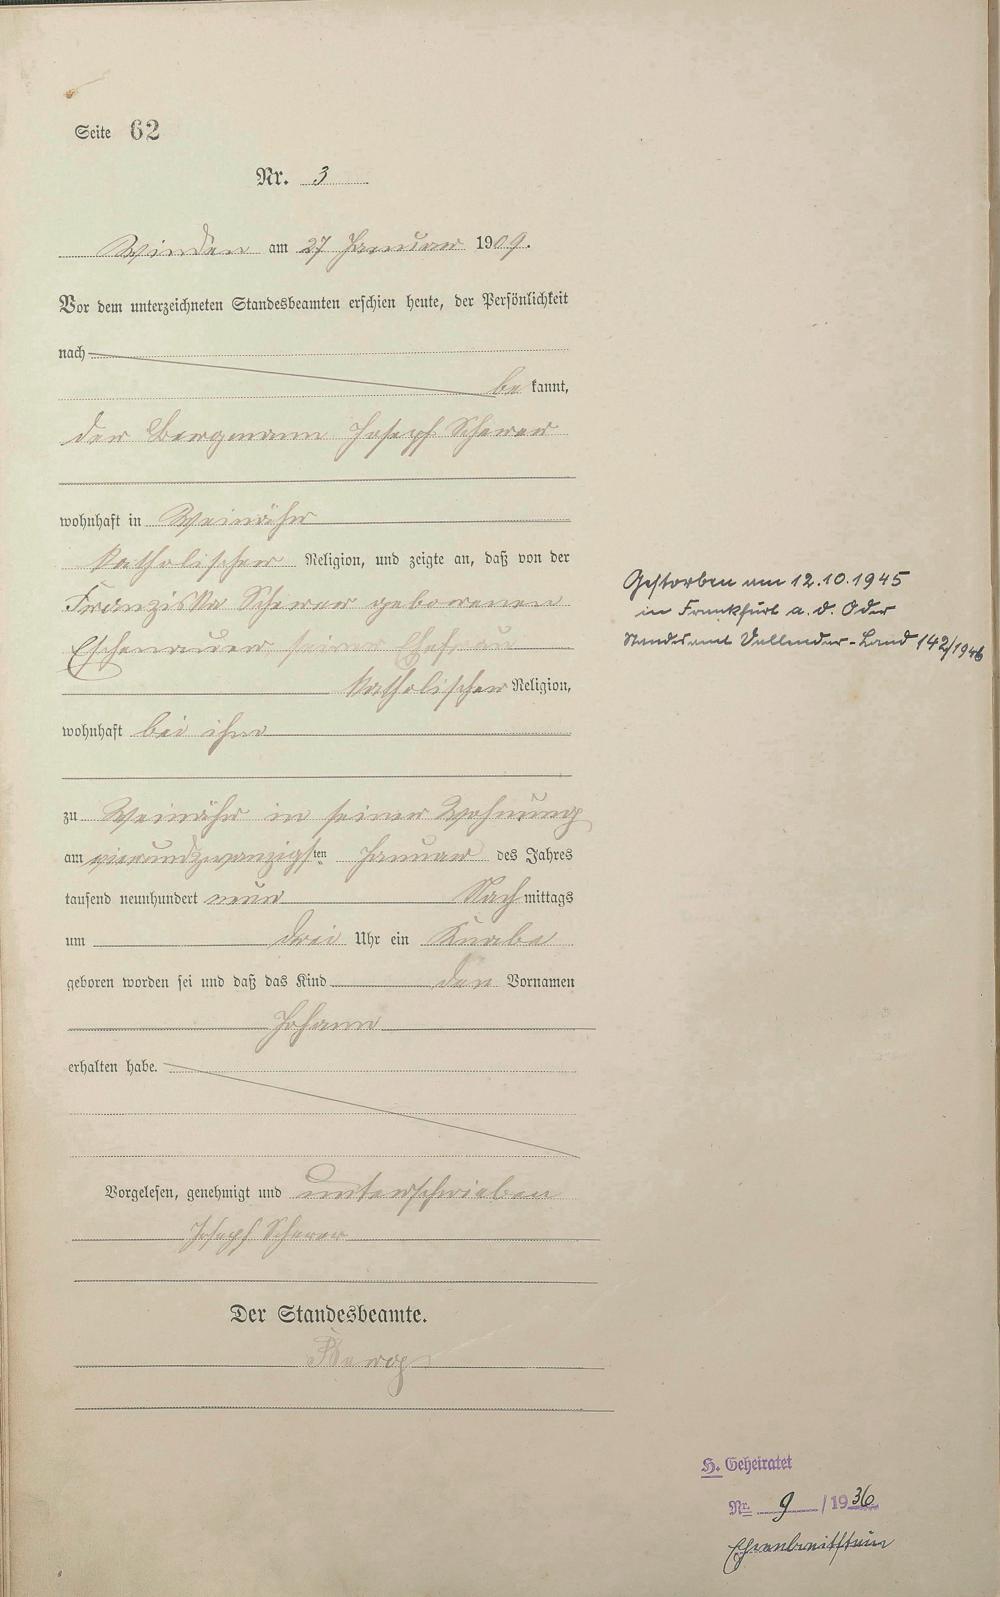 Seite 62
Nr. 3
Winden am 27 Januar 1909.
Vor dem unterzeichneten Standesbeamten erschien heute, der Persönlichkeit
nach
be kannt,
der Bergmann Joseph Scherer
wohnhaft in Weinähr
katholischer Religion, und zeigte an, daß von der
Franziska Scherer geborenen
Eschenauer seiner Ehefrau
katholischer Religion,
wohnhaft bei ihm
zu Weinähr in seiner Wohnung
am vierundzwanzigsten Januar des Jahres
tausend neunhundert neun Nach mittags
um drei Uhr ein Knabe
geboren worden sei und daß das Kind den Vornamen
Johann
erhalten habe.
Vorgelesen, genehmigt und unterschrieben
Joseph Scherer
Der Standesbeamte.
Gestorben am 12.10.1945
in Frankfurt a. d. Oder
Standesamt Vallendar-Land 142/1946
H. Geheiratet
Nr. 9 / 1936
Ehrenbreitstein